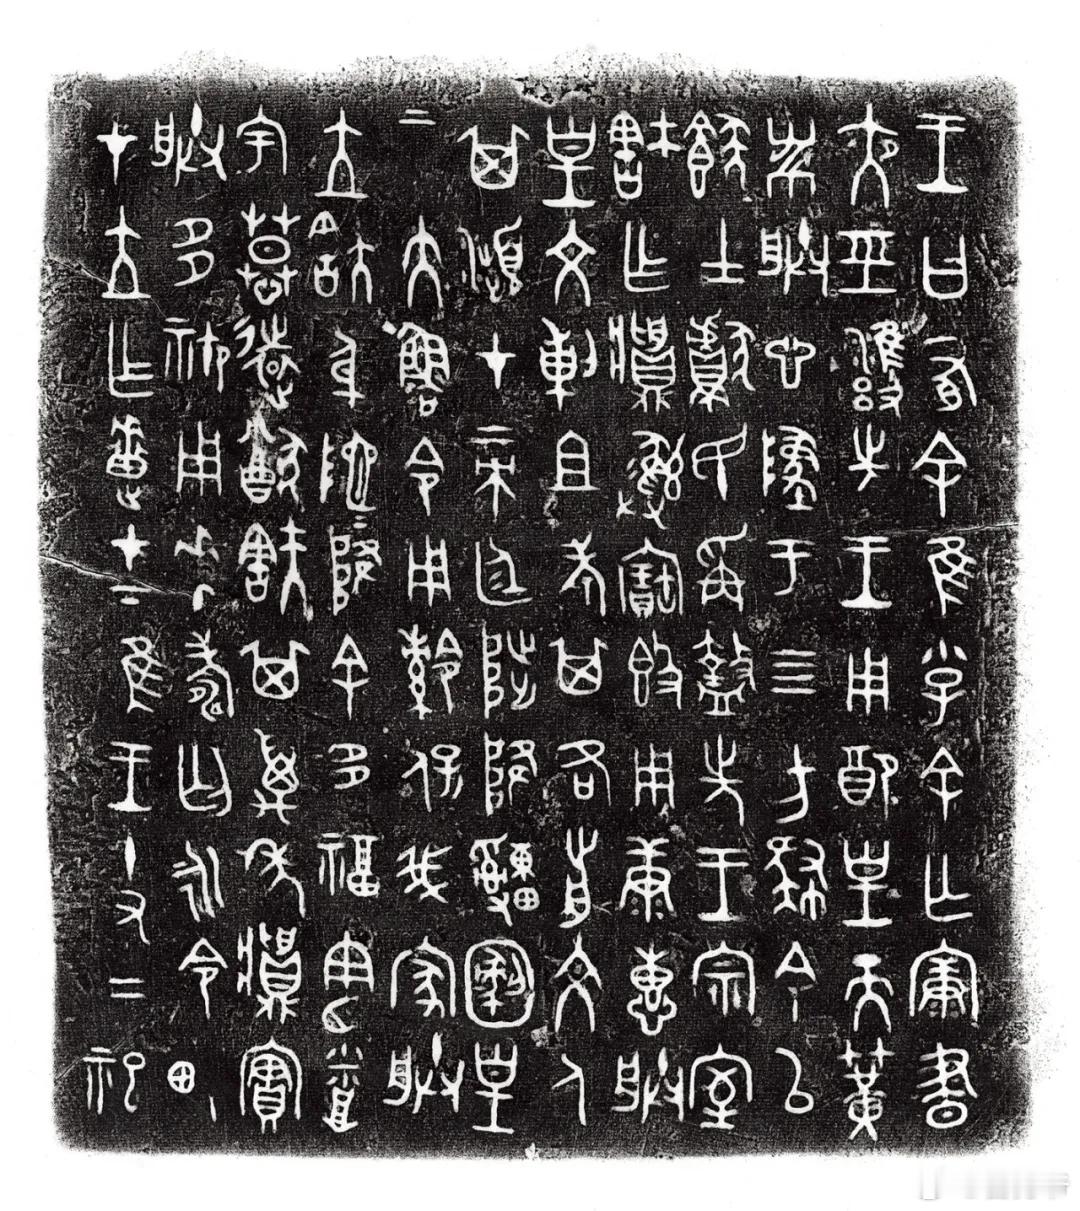 王曰有余隹小子余亡康晝
夜巠雝先王用配皇天黃
黹朕心墜于四方肆余以
𩛥士獻民爯盩先王宗室
㝬乍𪔉彝寶簋用康惠朕
皇文剌且考其各前文人
其瀕才帝廷陟降𤕌皇
帝大魯令用保我家朕
立㝬身阤阤降余多福憲烝
宇慕遠猷㝬其萬年𪔉實
朕多禦用𠦪壽匄永令畯
才立乍疐才下隹王十又二祀